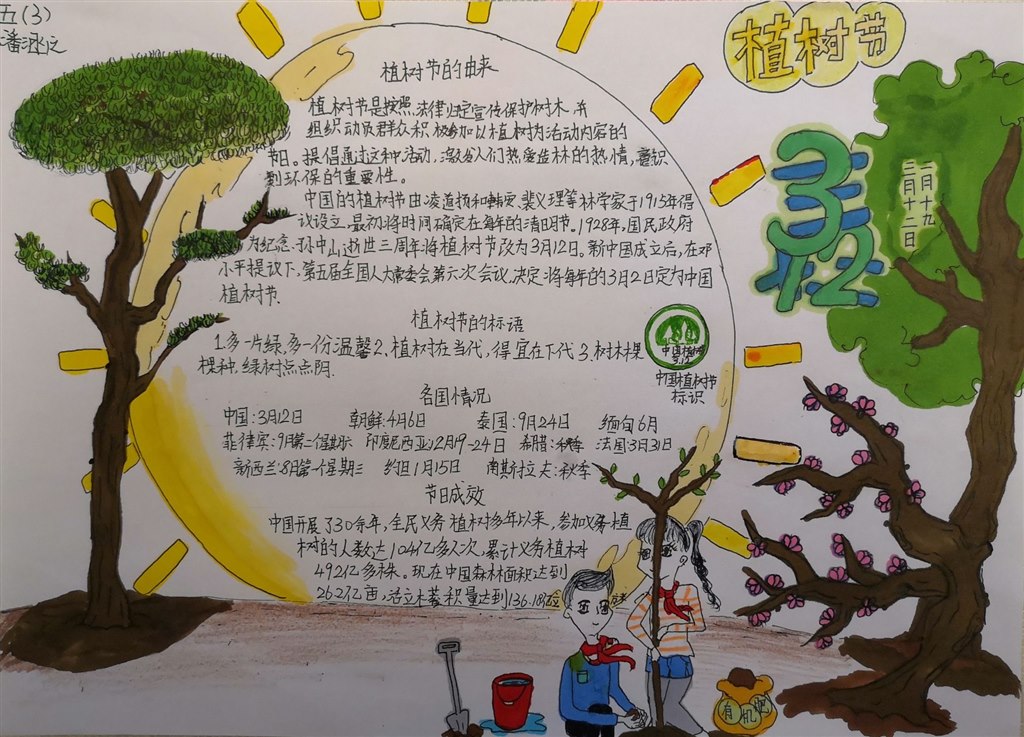 五(3)
潘
植树节
3.12
二月十九
三月十二日
植树节的由来
植树节是按照法律规定宣传保护树木,并
组织动员群众积极参加以植树为活动内容的
节日。提倡通过这种活动,激发人们热爱造林的热情,意识
到环保的重要性。
中国的植树节由凌道扬和韩安、裴义理等林学家于1915年倡
议设立,最初将时间确定在每年的清明节。1928年,国民政府
为纪念孙中山逝世三周年将植树节改为3月12日。新中国成立后,在邓
小平提议下,第五届全国人大常委会第六次会议,决定将每年的3月2日定为中国
植树节.
植树节的标语
1.多一片绿,多一份温馨2、植树在当代,得宜在下代 3.树林棵
棵种,绿树点点阴.
中国植树节
标识
各国情况
中国:3月12日 朝鲜:4月6日 泰国:9月24日 缅甸6月
菲律宾:9月第二个星期 印度尼西亚:12月19-24日 希腊:秋季 法国:3月31日
新西兰:8月第一个星期三 约旦1月15日 南斯拉夫:秋季
节日成效
中国开展了30余年,全民义务植树多年以来,参加义务植
树的人数达104亿多人次,累计义务植树
492亿多株。现在中国森林面积达到
26.2亿亩,活立木蓄积量达到136.18亿
有机肥